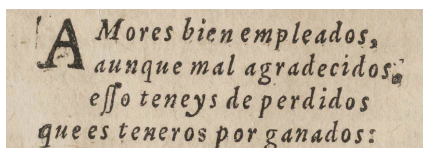 AMores bien empleados,
aunque mal agradecidos,
esso teneys de perdidos
que es teneros por ganados: